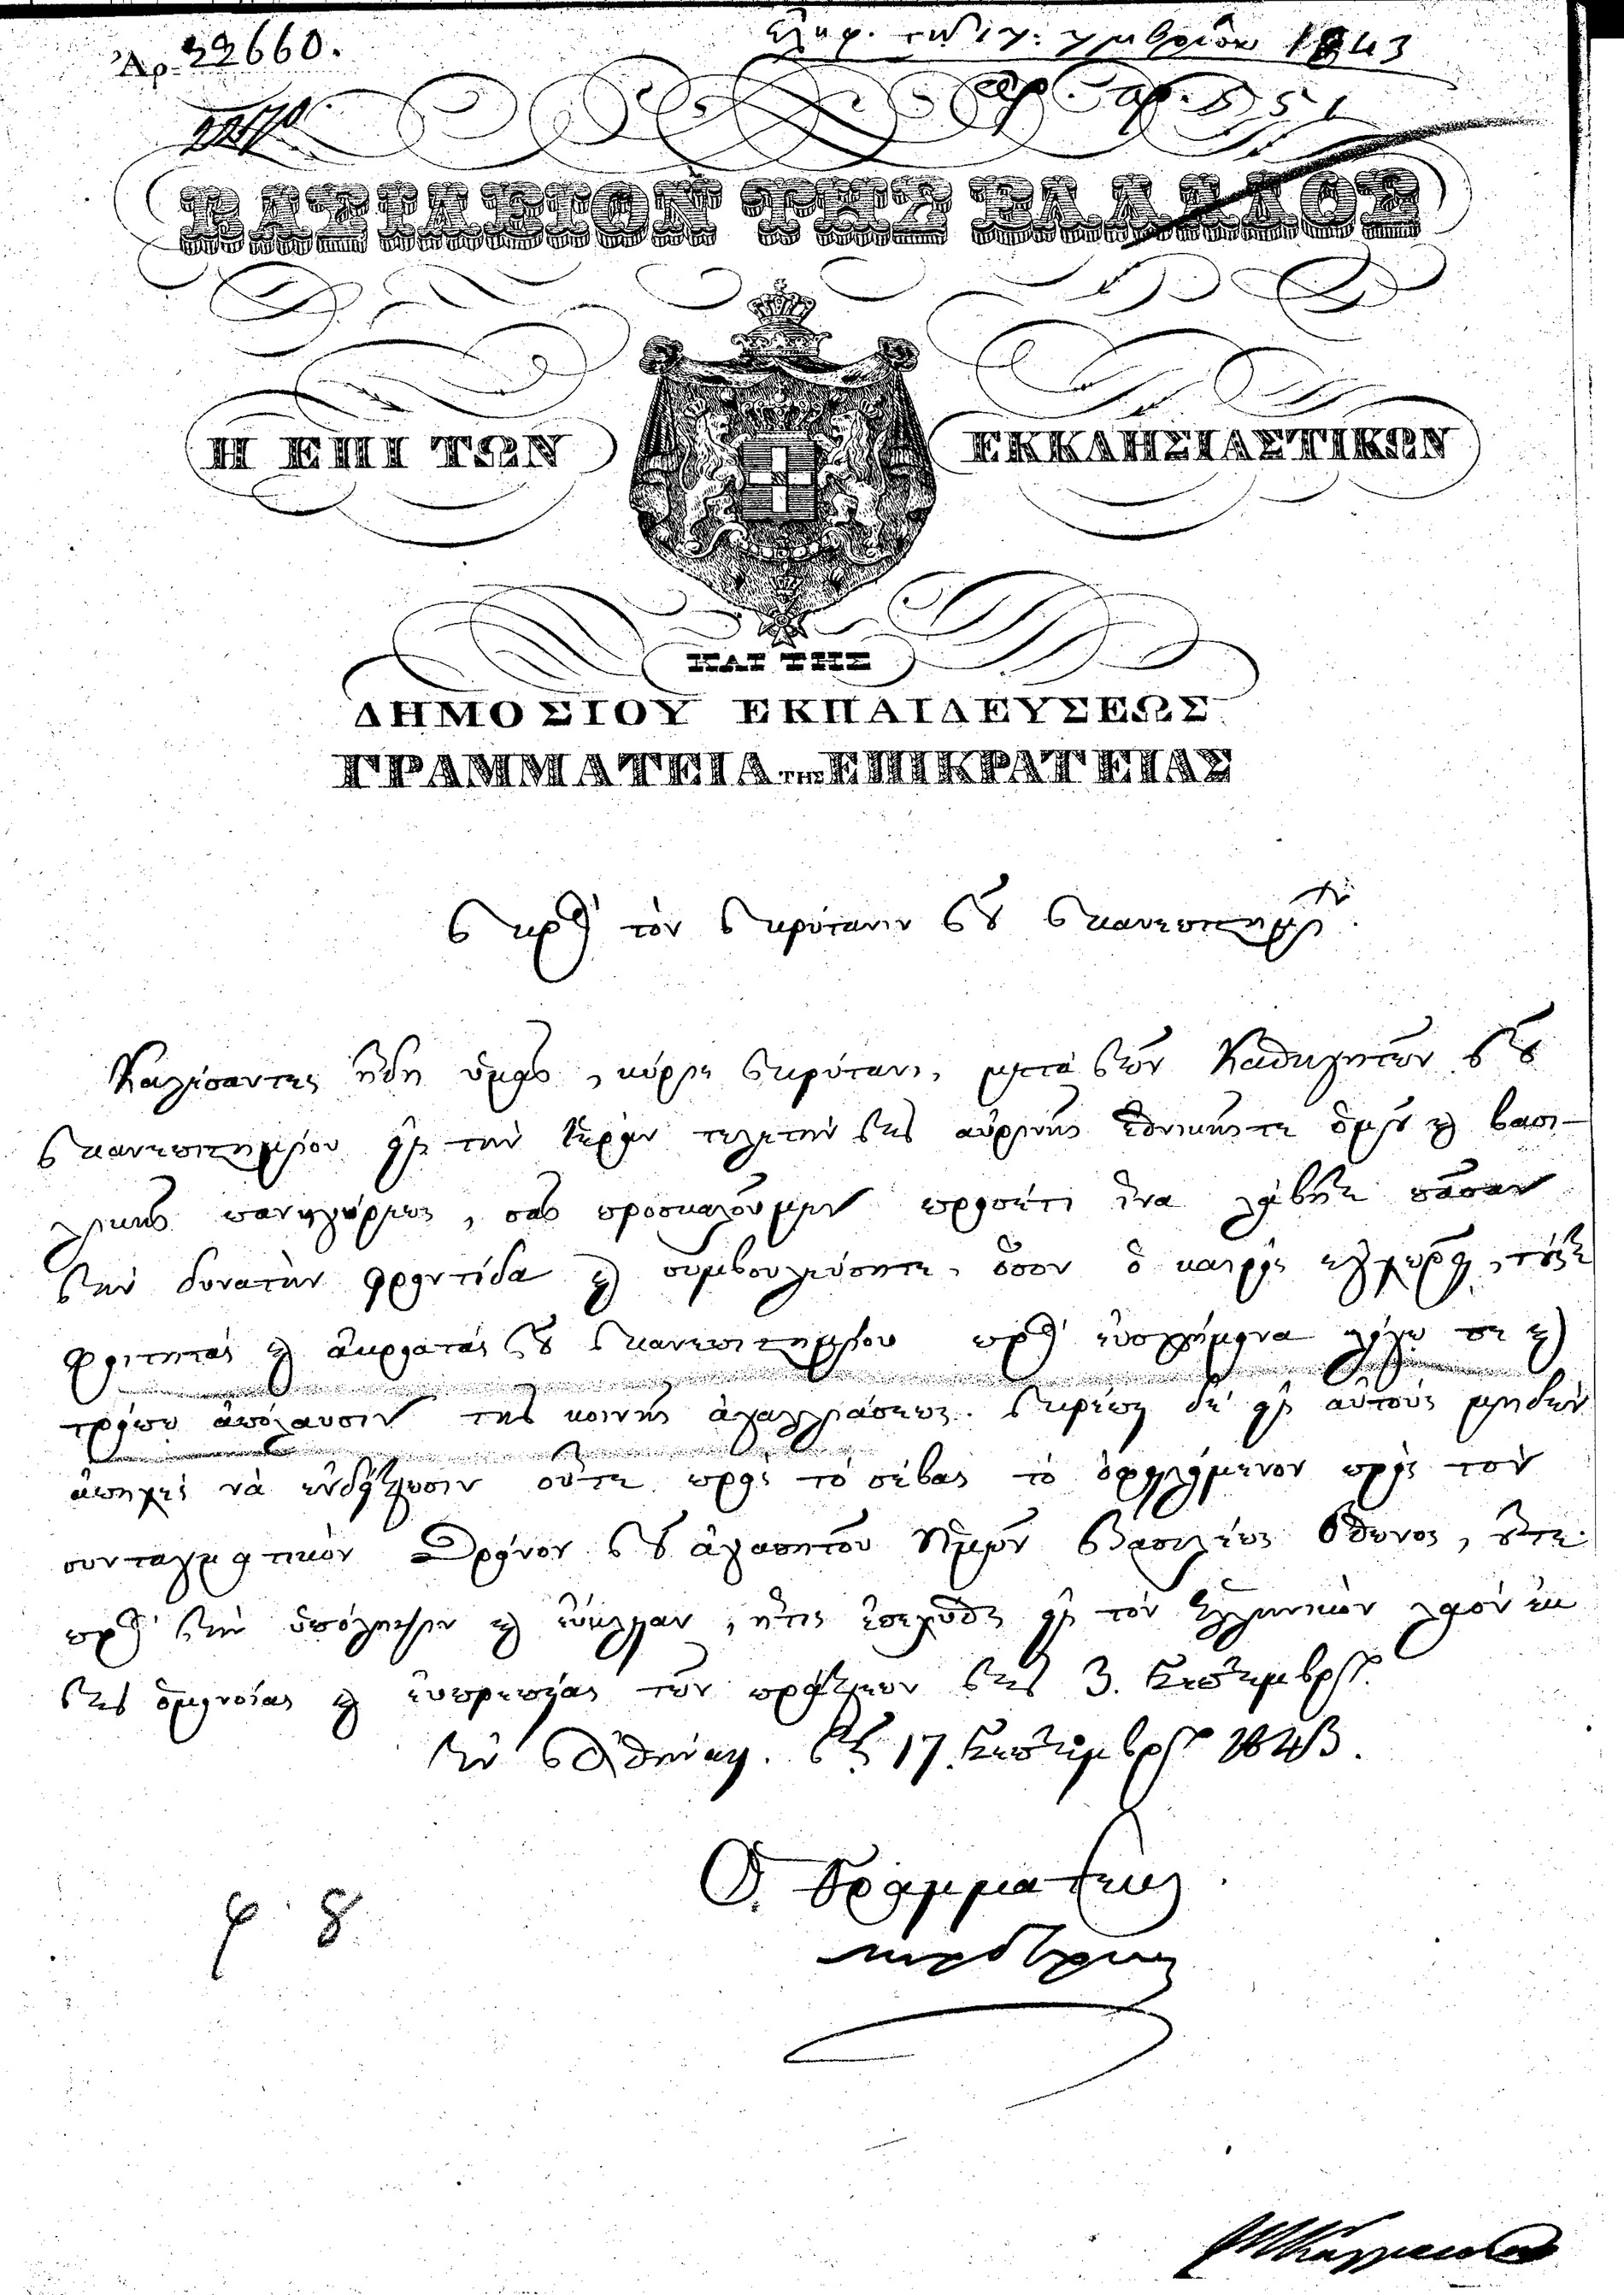 Ἀρ. 22660.
1843
ἀρ. 551
ΒΑΣΙΛΕΙΟΝ ΤΗΣ ΕΛΛΑΔΟΣ
Η ΕΠΙ ΤΩΝ ΕΚΚΛΗΣΙΑΣΤΙΚΩΝ
ΚΑΙ ΤΗΣ
ΔΗΜΟΣΙΟΥ ΕΚΠΑΙΔΕΥΣΕΩΣ
ΓΡΑΜΜΑΤΕΙΑ ΤΗΣ ΕΠΙΚΡΑΤΕΙΑΣ
Πρὸς τὸν Πρύτανιν τοῦ Πανεπιστημίου
Καλέσαντες ἤδη ὑμᾶς, κύριε Πρύτανι, μετὰ τῶν Καθηγητῶν τοῦ
Πανεπιστημίου εἰς τὴν ἱερὰν τελετὴν τῆς αὐρινῆς ἐθνικῆς τε ὁμοῦ καὶ βασι-
λικῆς πανηγύρεως, σᾶς προσκαλοῦμεν προσέτι ἵνα λάβητε πᾶσαν
τὴν δυνατὴν φροντίδα καὶ συμβουλεύσητε, ὅσον ὁ καιρὸς συγχωρεῖ, τούς τε
φοιτητὰς καὶ ἀκροατὰς τοῦ Πανεπιστημίου πρὸς εὐσχήμονα λόγῳ τε καὶ
τρόπῳ ἀπόλαυσιν τῆς κοινῆς ἀγαλλιάσεως. Πρέπει δὲ εἰς αὐτοὺς μηδὲν
ἀπηχὲς νὰ ἐνδείξωσιν οὔτε πρὸς τὸ σέβας τὸ ὀφειλόμενον πρὸς τὸν
συνταγματικὸν Θρόνον τοῦ ἀγαπητοῦ ἡμῶν Βασιλέως Ὄθωνος, οὔτε
πρὸς τὴν ὑπόληψιν καὶ εὔκλειαν, ἥτις ἐπεχύθη εἰς τὸν Ἑλληνικὸν λαὸν ἐκ
τῆς ὁμονοίας καὶ εὐπρεπείας τῶν πράξεων τῆς 3. Σεπτεμβρίου.
Ἐν Ἀθήναις. τῇ 17. Σεπτεμβρίου 1843.
Ὁ Γραμματεὺς
φ. 8